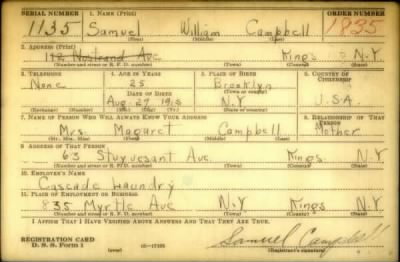 SERIAL NUMBER 1. NAME (Print) ORDER NUMBER
1135 Samuel William Campbell 1835
(First) (Middle) (Last)
2. ADDRESS (Print)
Nostrand Ave Kings N.Y.
(Number and street or R. F. D. number) (Town) (County) (State)
3. TELEPHONE 4. AGE IN YEARS 5. PLACE OF BIRTH 6. COUNTRY OF CITIZENSHIP
None 25 Brooklyn
DATE OF BIRTH
Aug. 27 N.Y U.S.A.
(Exchange) (Number) (Mo.) (Day) (Yr.) (State or county)
7. NAME OF PERSON WHO WILL ALWAYS KNOW YOUR ADDRESS 8. RELATIONSHIP OF THAT PERSON
Mrs. Magaret Campbell Mother
(Mr., Mrs., Miss) (First) (Middle) (Last)
9. ADDRESS OF THAT PERSON
63 Stuyvesant Ave. Kings N.Y.
(Number and street or R. F. D. number) (Town) (County) (State)
10. EMPLOYER'S NAME
Cascade Laundry
11. PLACE OF EMPLOYMENT OR BUSINESS
835 Myrtle Ave N.Y Kings N.Y
(Number and street or R. F. D. number) (Town) (County) (State)
I AFFIRM THAT I HAVE VERIFIED ABOVE ANSWERS AND THAT THEY ARE TRUE.
REGISTRATION CARD
D. S. S. Form 1 (over) Samuel Campbell